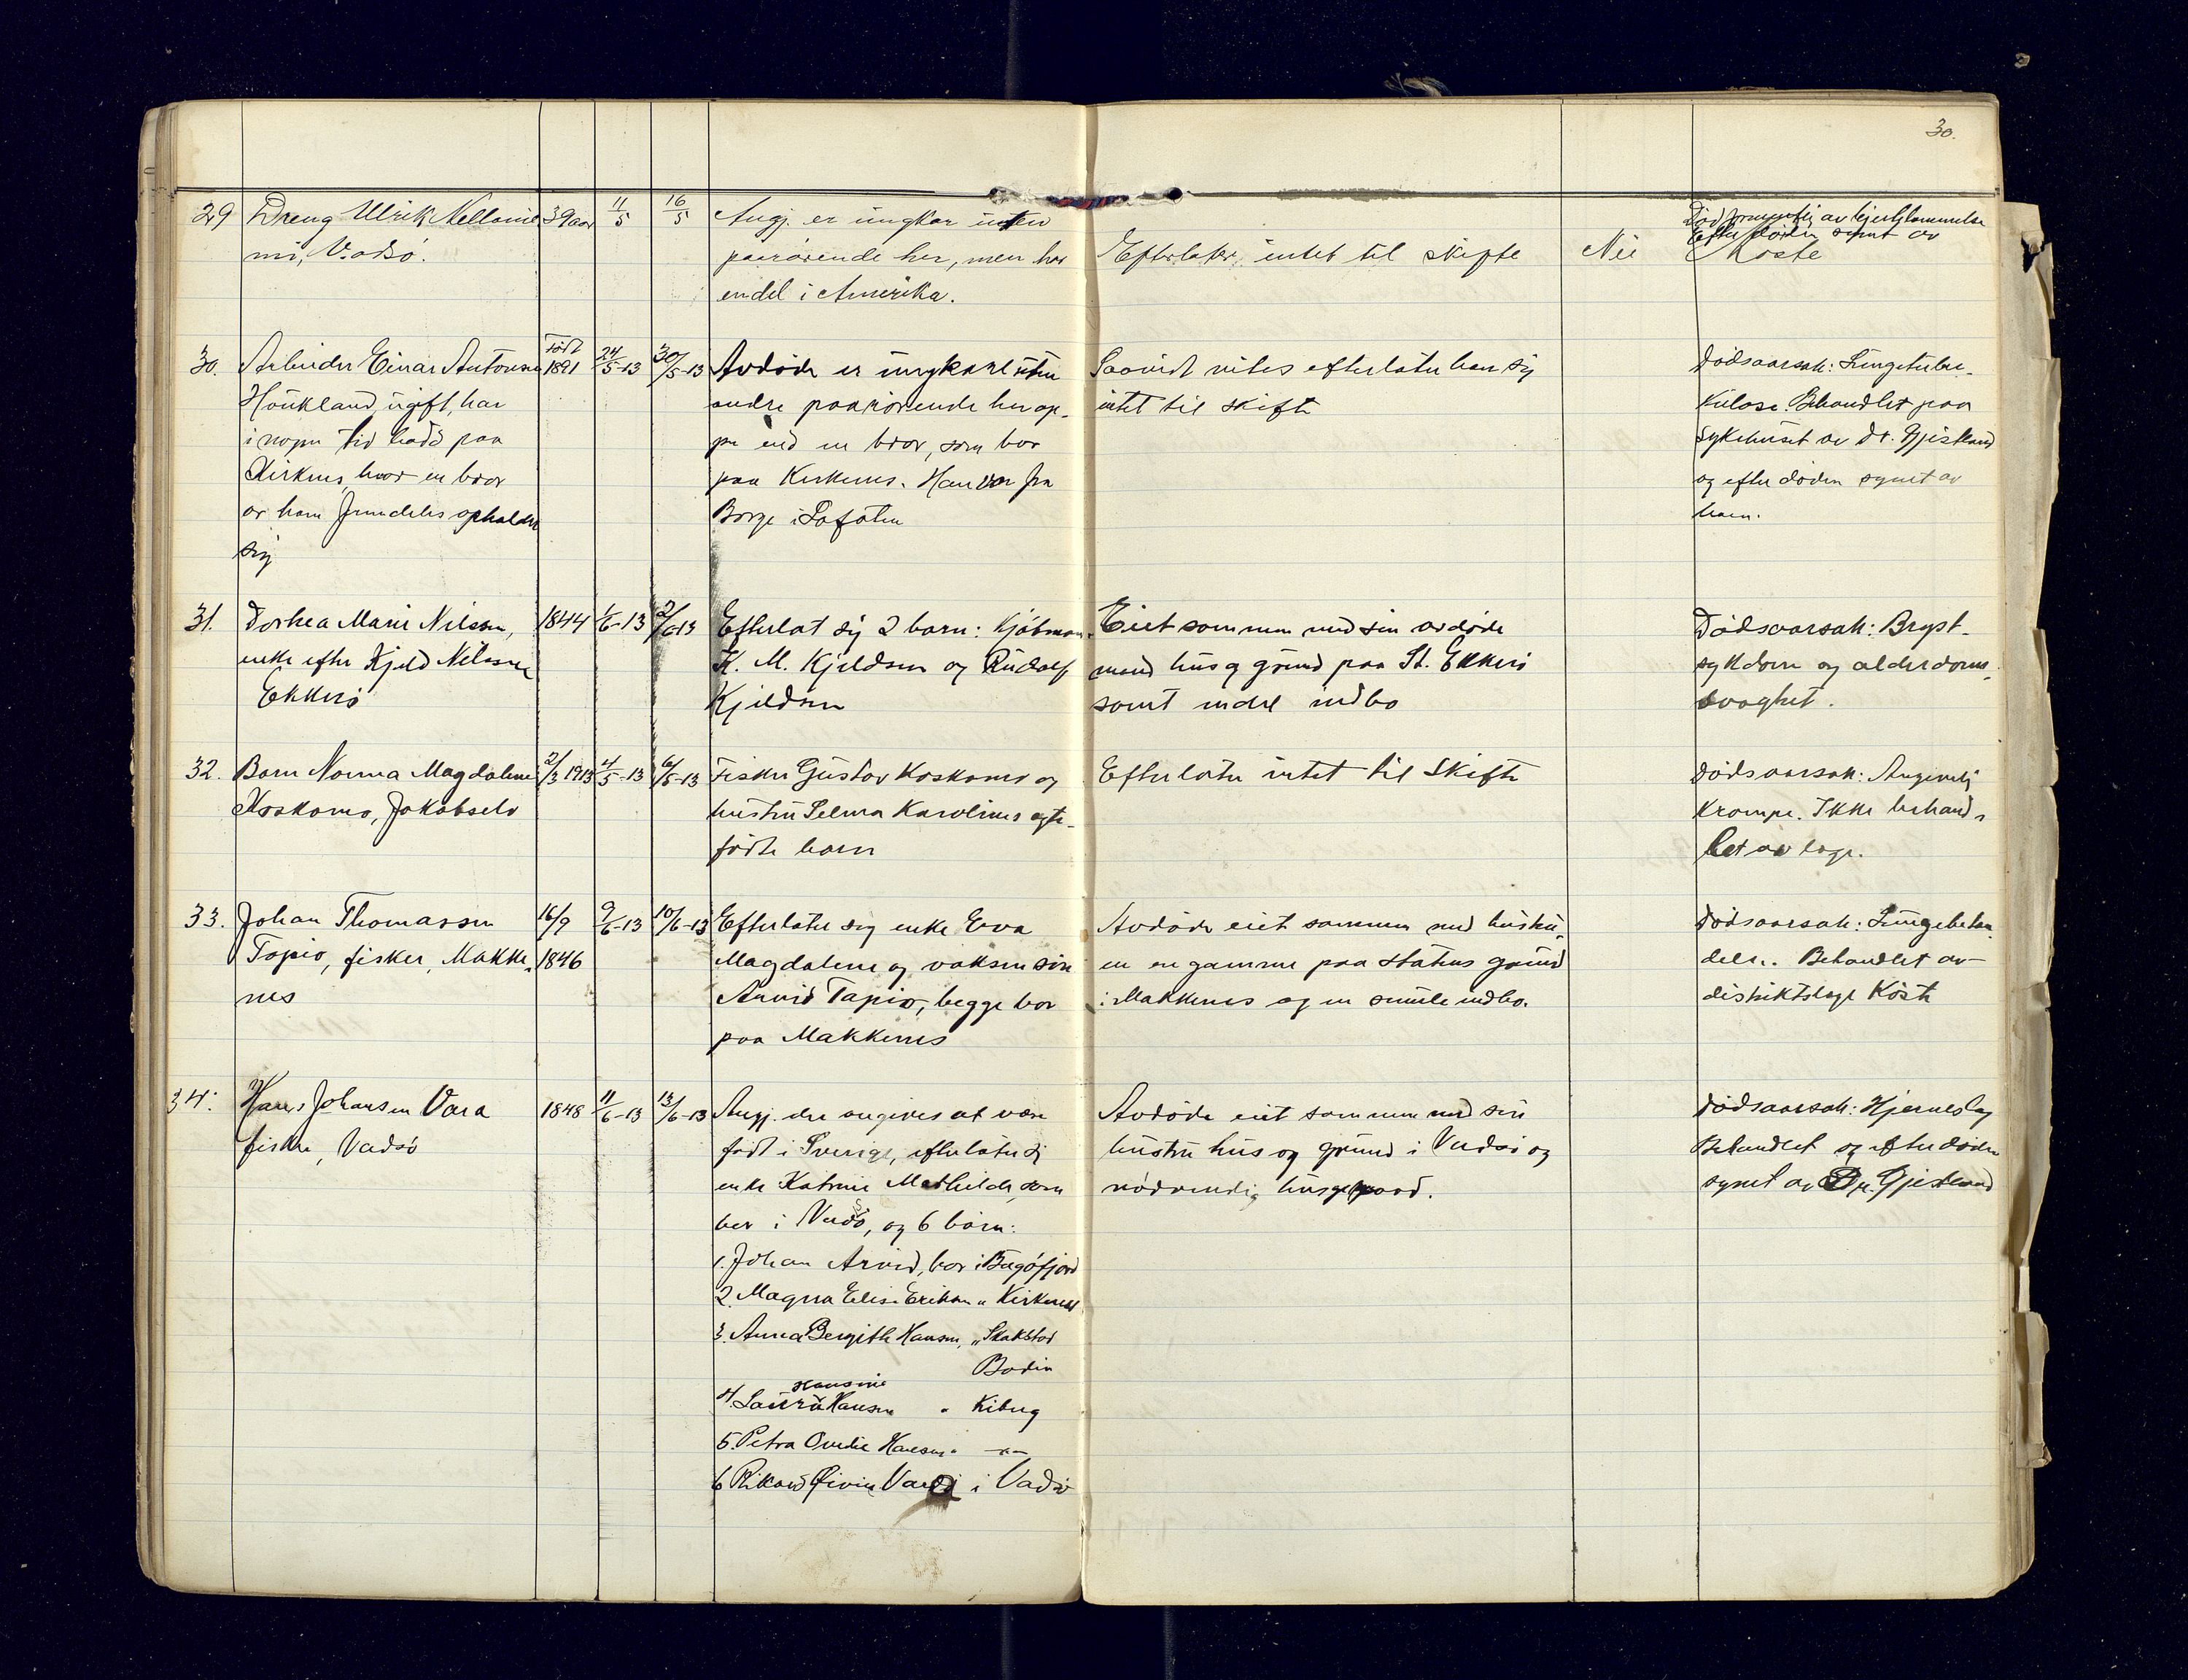 30.
29 Dreng Ulrik Nellonie- 39 aar 11/5 16/5
mi, Vadsø.
Angj. er ungkar uten
paarørende her, men har
endel i Amerika.
Efterlater intet til skifte
Nei
Efter døden synet av
Koste
30. Arbeider Einar Antonsen født 1891 24/5-13 30/5-13
Haukland, ugift, har
i nogen tid bodd paa
Kirkenes, hvor en bror
av ham fremdeles opholder
sig
Avdøde er ungkarl uten
andre paarørende her op-
pe end en bror, som bor
paa Kirkenes. Han var fra
Borge i Lofoten
Saavidt vites efterlater han sig
intet til skifte
Dødsaarsak: Lungetuber-
kulose. Behandlet paa
sykehuset av dr. Gjestland
og efter døden synet av
ham.
31. Dorhea Marie Nilssen, 1844 1/6-13 2/6-13
enke efter Kjeld Nilssen
Ekkerø
Efterlat sig 2 barn: Kjøbmand
K. M. Kjeldsen og Rudolf
Kjeldsen
Eiet sammen med sin avdøde
mand hus og grund paa St. Ekkerø
samt endel indbo
Dødsaarsak: Bryst-
sykdom og alderdoms-
svaghet.
32. Barn Norma Magdalene 2/3 1913 4/5-13 6/5-13
Koskamo, Jakobselv
Fisker Gustav Koskamo og
hustru Selma Karolines egte-
fødte barn
Efterlater intet til Skifte
Dødsaarsak: Angivelig
Krampe. Ikke behand-
let av læge.
33. Johan Thomassen 16/9 9/6-13 10/6-13
Tapio, fisker, Makke- 1846
nes
Efterlater sig enke Eva
Magdalene og voksen søn
Arvid Tapio, begge bor
paa Makkenes
Avdøde eiet sammen med hustru-
en en gamme paa statens grund
i Makkenes og en smule indbo.
Dødsaarsak: Lungebetæn-
delse. Behandlet av
distriktslæge Köste
34. Hans Johansen Vara 1848 11/6-13 13/6-13
fisker, Vadsø
Angj. der angives at være
født i Sverige, efterlater sig
enke Katrine Mathilde, som
bor i Vadsø, og 6 barn:
1. Johan Arvid, bor i Bugøfjord
2. Magna Elise Eriksen " Kirkenes
3. Anna Bergithe Hansen, " Skakstad
Bodin
Hansine
4. Laura Hansen " Kiberg
5. Petra Ovedie Hansen " —"—
6 Rikard Eivin Vara i Vadsø
Avdøde eiet sammen med sin
hustru hus og grund i Vadsø og
nødvendig husgeraad.
Dødsaarsak: Hjerneslag
Behandlet og efter døden
synet av Dr. Gjestland